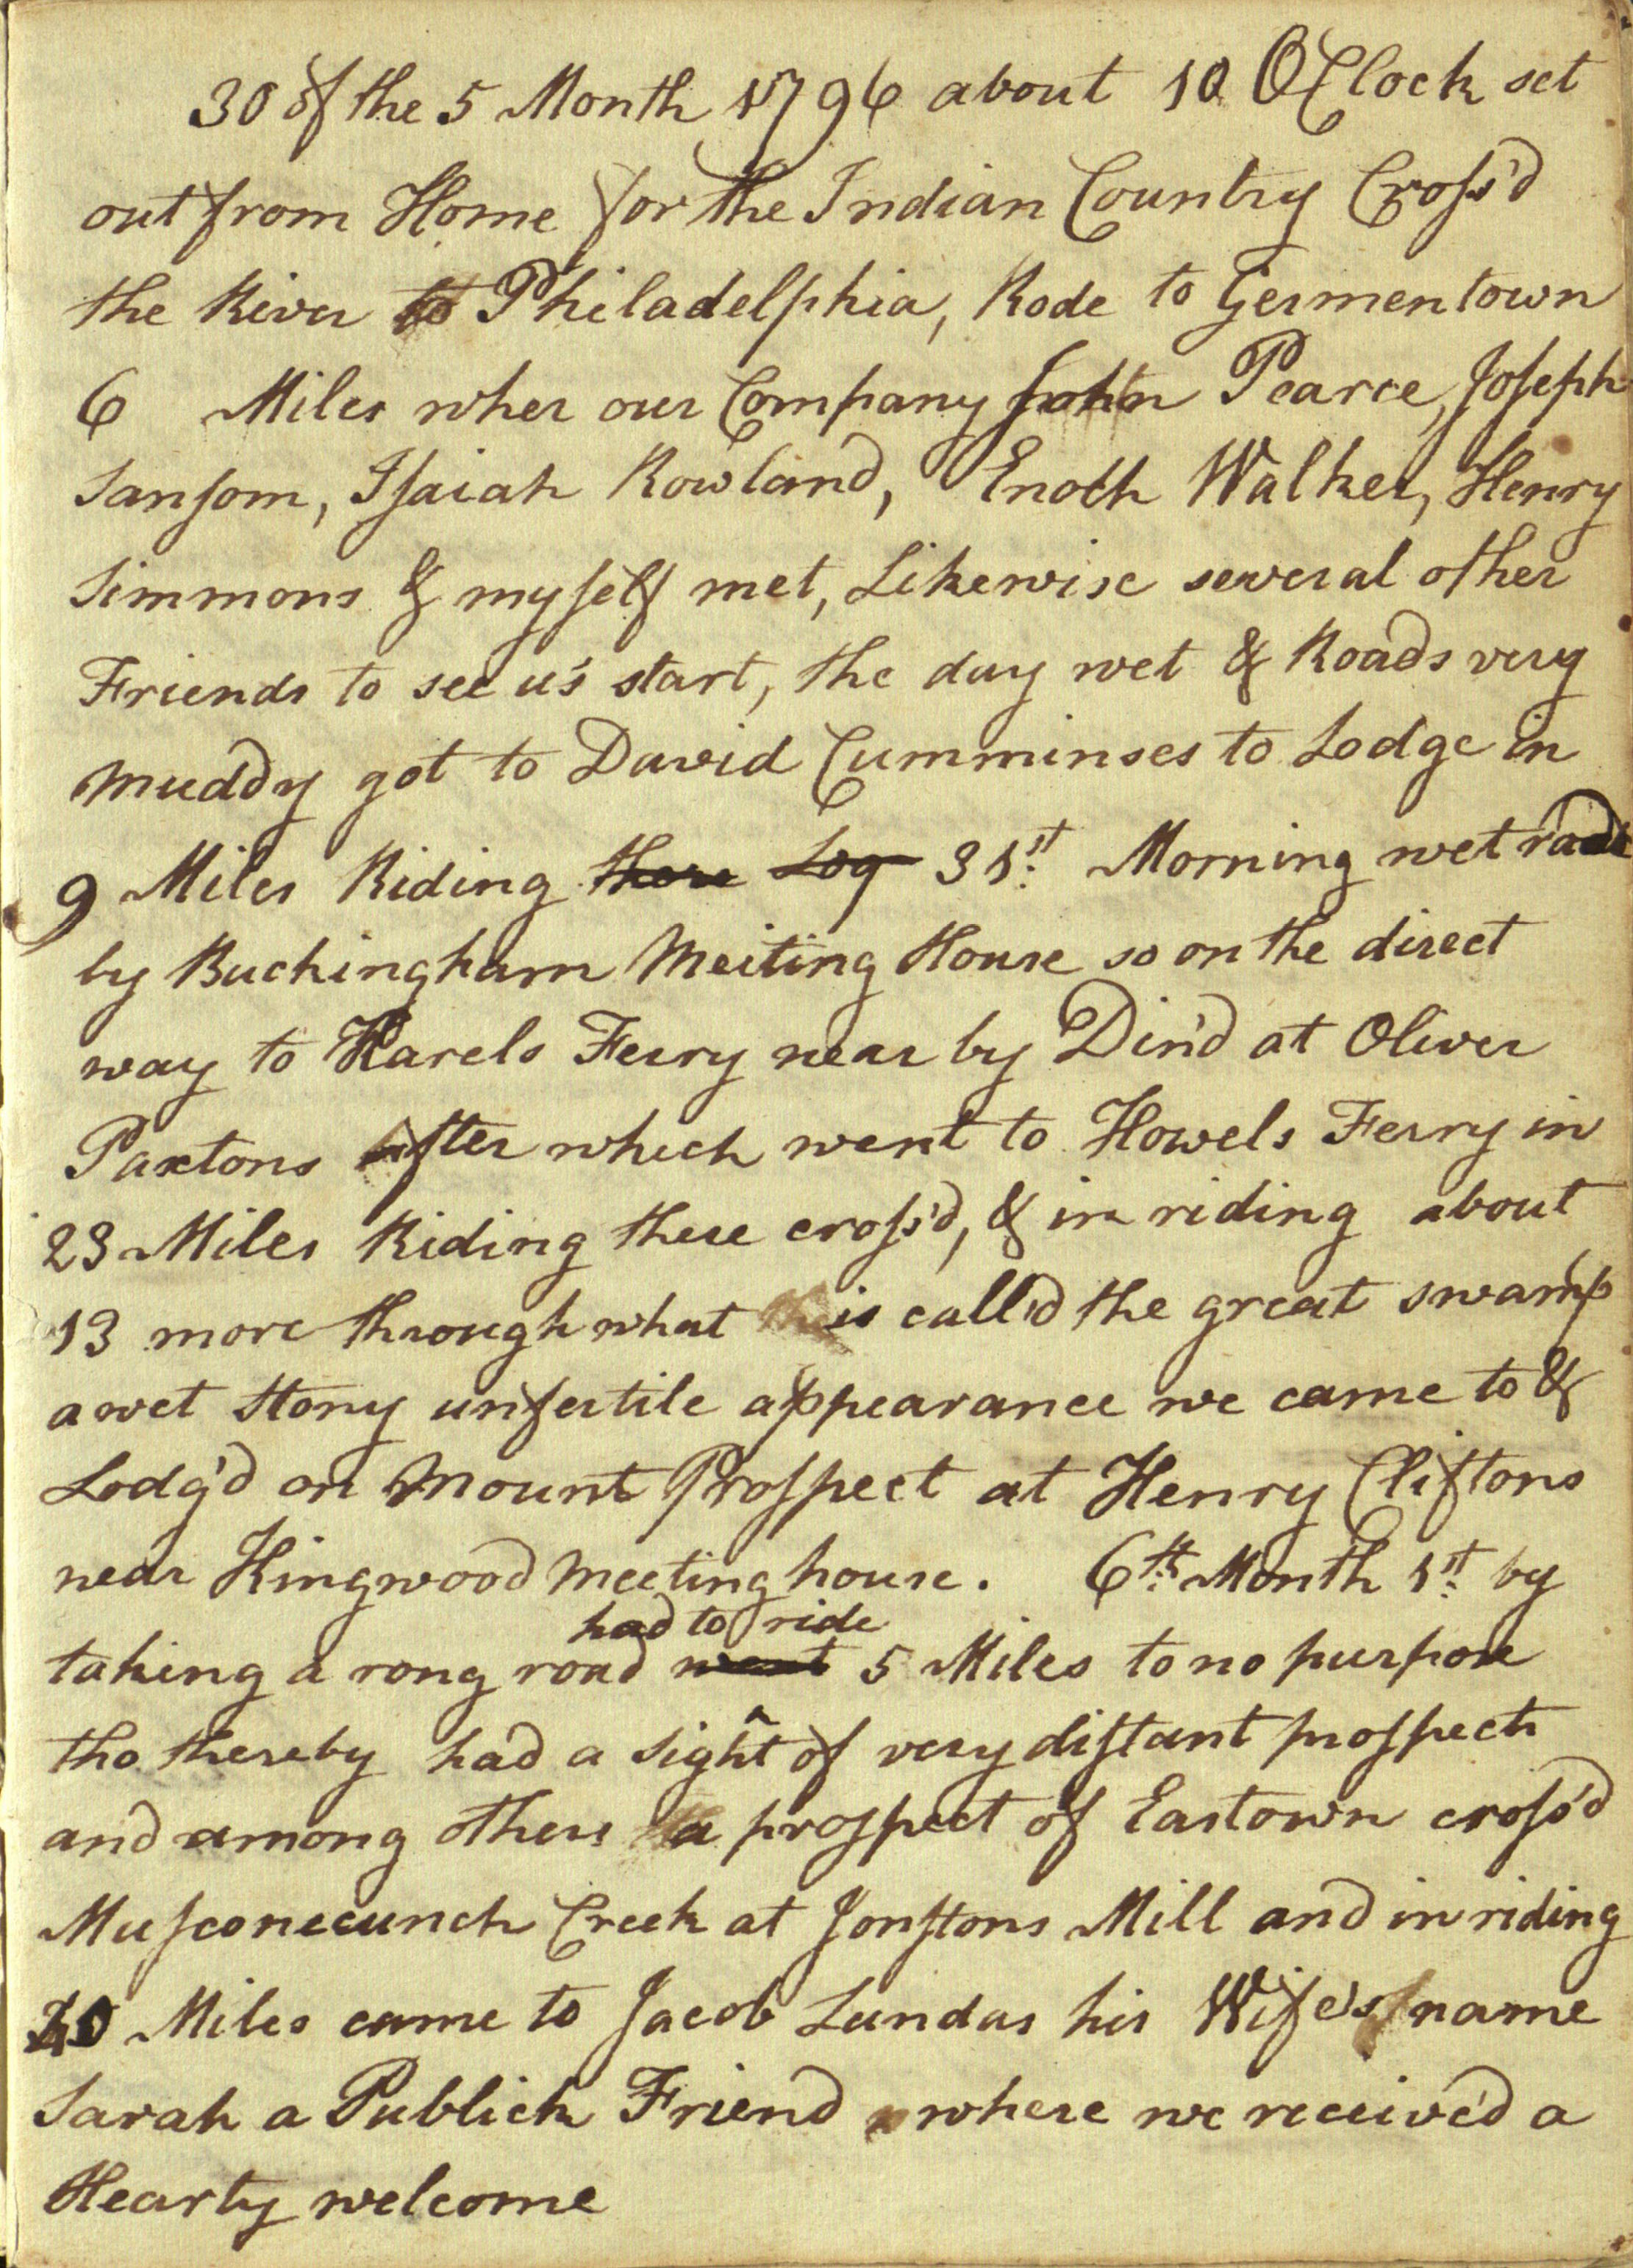 30 of the 5 Month 1796 about 10 OClock set
out from Home for the Indian Country Cross'd
the River to Philadelphia, Rode to Germentown
6 Miles wher our Company John Pearce, Joseph
Sansom, Isaiah Rowland, Enoch Walker, Henry
Simmons & myself met, Likewise several other
Friends to see us start, the day wet & Roads very
muddy got to David Cumminses to Lodge in
9 Miles Riding there Log 31st Morning wet rode
by Buckingham Meiting House so on the direct
way to Karels Ferry near by Din'd at Oliver
Paxtons after which went to Howels Ferry in
23 Miles Riding there cross'd, & in riding about
13 more through what is call'd the great swamp
a wet stony unfertile appearance we came to &
Lodg'd on Mount Prospect at Henry Cliftons
near Kingwood meeting house. 6th Month 1st by
had to ride
taking a rong road went 5 Miles to no purpose
tho thereby had a sight of very distant prospects
and among others a prospect of Eastown cross'd
Musconecunch Creek at Jonstons Mill and in riding
40 Miles came to Jacob Lundas his Wife's name
Sarah a Publick Friend where we receiv'd a
Hearty welcome